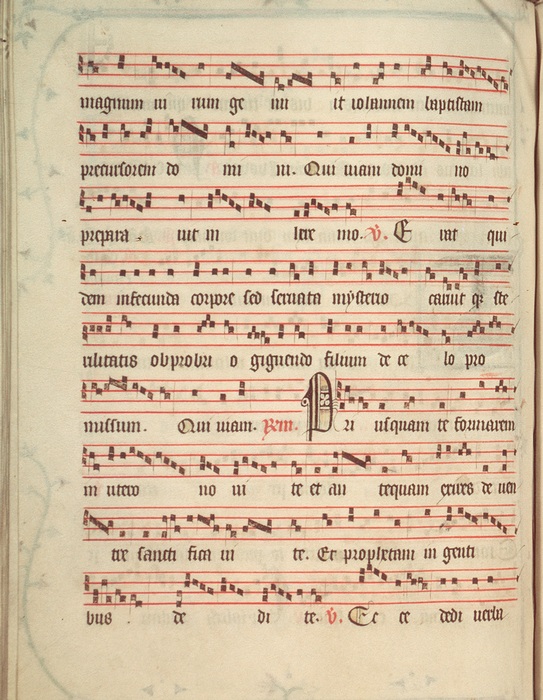 magnum ui rum ge nu it iohannem baptistam
precursorem do mi ni. Qui uiam domi no
prepara uit in here mo. V. E rat qui
dem infecunda corpore sed fecunda mysterio caruit q; ste
rilitatis obprobri o gignendo filium de ce lo pro
missum. Qui uiam. Rm. Pri usquam te formarem
in utero no ui te et an tequam exires de uen
tre sancti fica ui te. Et prophetam in genti
bus de di te. V. Ec ce dedi uerba